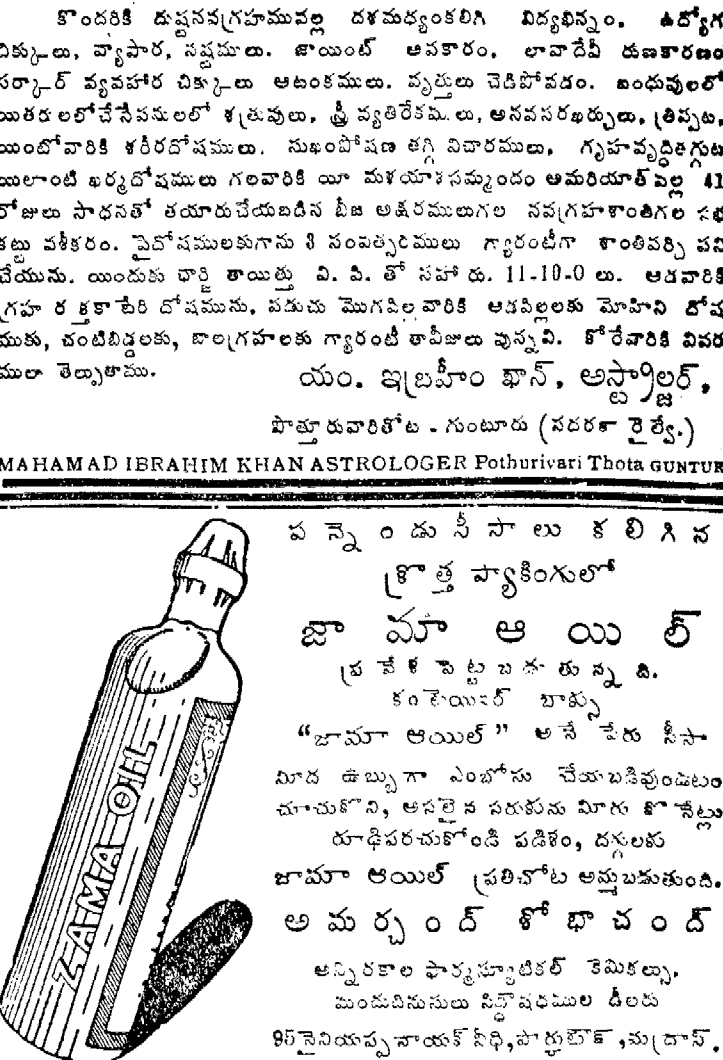 కొందరికి దుష్టనవగ్రహమువల్ల దశమధ్యంకలిగి విద్యఖిన్నం, ఉద్యోగ
చిక్కులు, వ్యాపార, నష్టములు. జాయింట్ ఆవకారం, లావాదేవీ రుణకారణం
సర్కార్ వ్యవహార చిక్కులు ఆటంకములు. వృత్తులు చెడిపోవడం. బంధువులలో
యితరులలోచేసేపనులలో శత్రువులు, స్త్రీ వ్యతిరేకములు, అనవసరఖర్చులు, త్రిప్పట,
యింటోవారికి శరీరదోషములు. సుఖంపోషణ తగ్గి విచారములు, గృహవృద్ధితగ్గుట
యిలాంటి ఖర్మదోషములు గలవారికి యీ మళయాళసమ్మందం ఆమరియాత్ వల్ల 41
రోజులు సాధనతో తయారుచేయబడిన బీజ అక్షరములుగల నవగ్రహశాంతిగల సభ
కట్టు వశీకరం. పైదోషములకుగాను 3 సంవత్సరములు గ్యారంటీగా శాంతిపర్చి పని
చేయును. యిందుకు ఛార్జి తాయిత్తు వి. పి. తో సహా రు. 11-10-0 లు. ఆడవారికి
గ్రహ రక్తకాటేరి దోషమును, పడుచు మొగపిల్లవారికి ఆడపిల్లలకు మోహిని దోష
ముకు, చంటిబిడ్డలకు, బాలగ్రహలకు గ్యారంటీ తావీజులు వున్నవి. కోరేవారికి వివర
ములా తెల్పుతాము.
యం. ఇబ్రహీం ఖాన్, అస్ట్రాలజర్,
పొత్తూరువారితోట - గుంటూరు (సదరణ్ రైల్వే.)
MAHAMAD IBRAHIM KHAN ASTROLOGER Pothurivari Thota GUNTUR
పన్నెండుసీసాలు కలిగిన
క్రొత్త ప్యాకింగులో
జామా ఆయిల్
ప్రవేశపెట్టబడుతున్నది.
కంటెయినర్ బాక్సు
“జామా ఆయిల్” అనే పేరు సీసా
మీద ఉబ్బుగా ఎంబోసు చేయబడివుండటం
చూచుకొని, అసలైన సరుకును మీరు కొనేట్లు
రూఢిపరచుకోండి పడిశం, దగ్గులకు
జామా ఆయిల్ ప్రతిచోట అమ్మబడుతుంది.
అమర్చంద్ శోభాచంద్
అన్నిరకాల ఫార్మస్యూటికల్ కెమికల్సు,
మందుదినుసులు సిద్ధౌషధముల డీలరు
95 నైనియప్ప నాయక్ వీధి, పార్కుటౌన్, మద్రాస్.
ZAMA OIL